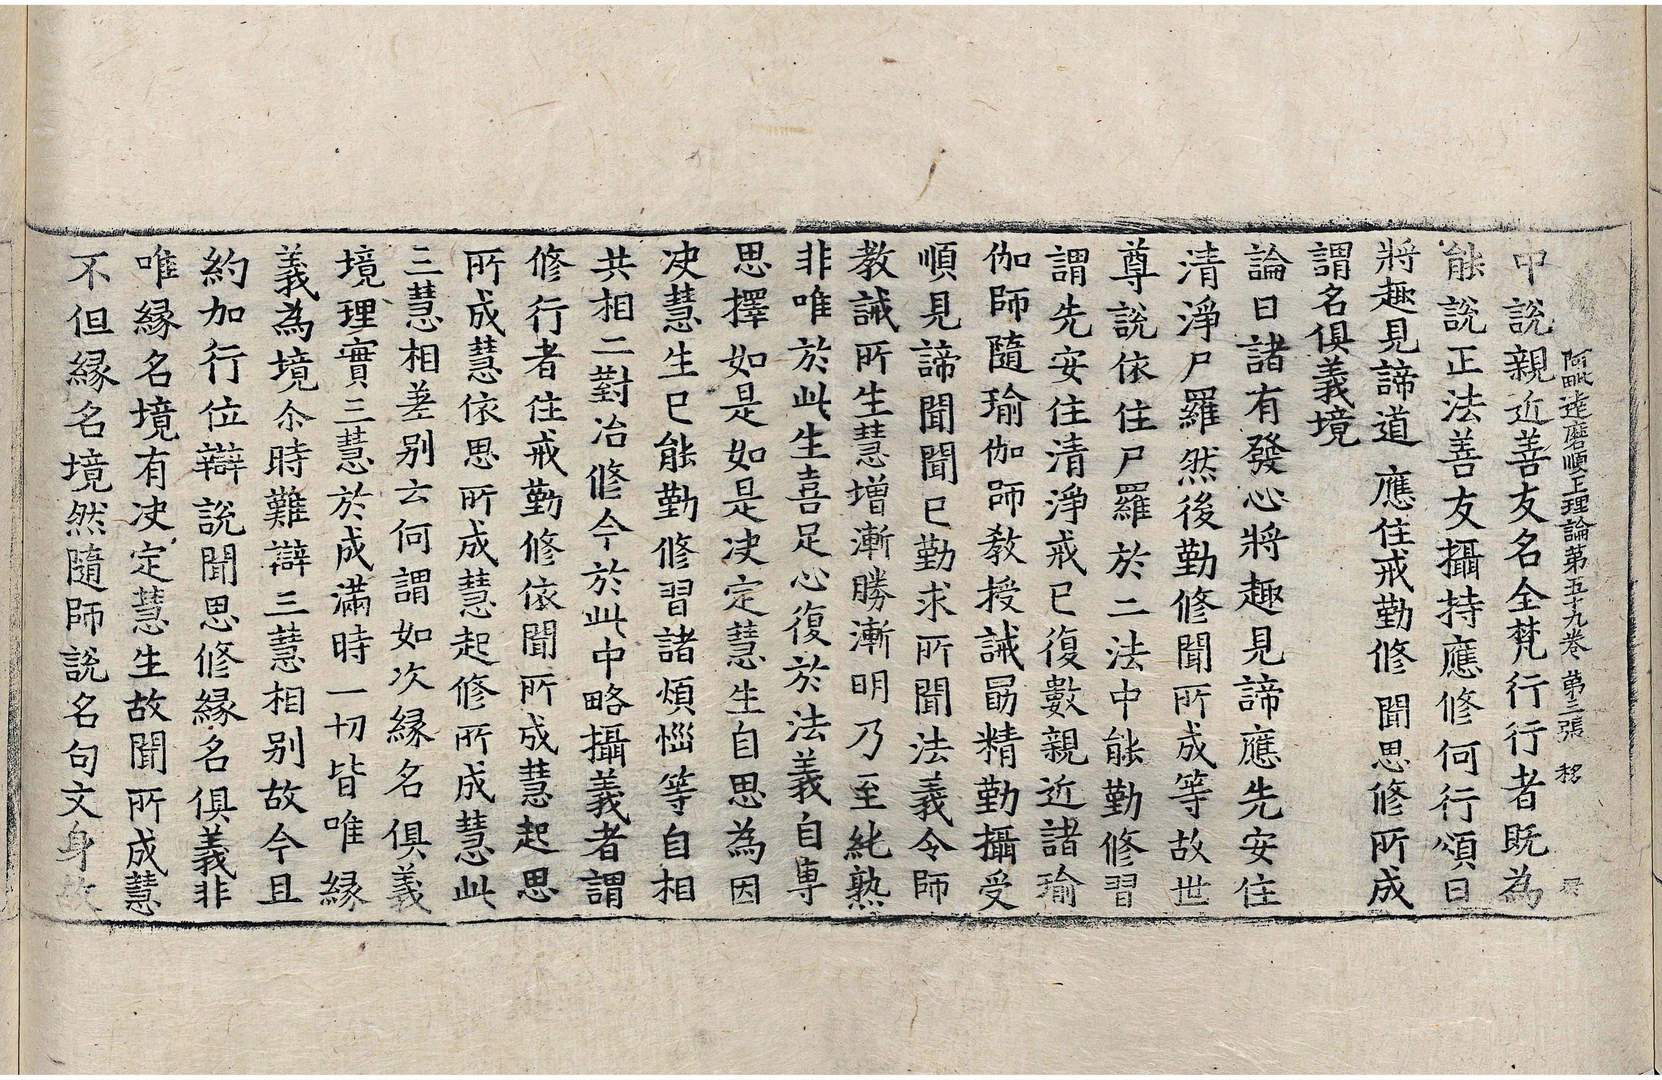 阿毗達磨順正理論第五十九卷 第三張 移
中說親近善友名全梵行行者既為
能說正法善友攝持應修何行頌曰
將趣見諦道 應住戒勤修 聞思修所成
謂名俱義境
論曰諸有發心將趣見諦應先安住
清淨尸羅然後勤修聞所成等故世
尊說依住尸羅於二法中能勤修習
謂先安住清淨戒已復數親近諸瑜
伽師隨瑜伽師教授誡勗精勤攝受
順見諦聞聞已勤求所聞法義令師
教誡所生慧增漸勝漸明乃至純熟
非唯於此生喜足心復於法義自專
思擇如是如是决定慧生自思為因
决慧生已能勤修習諸煩惱等自相
共相二對治修今於此中略攝義者謂
修行者住戒勤修依聞所成慧起思
所成慧依思所成慧起修所成慧此
三慧相差别云何謂如次緣名俱義
境理實三慧於成滿時一切皆唯緣
義為境尒時難辯三慧相别故今且
約加行位辯說聞思修緣名俱義非
唯緣名境有决定慧生故聞所成慧
不但緣名境然隨師說名句文身故